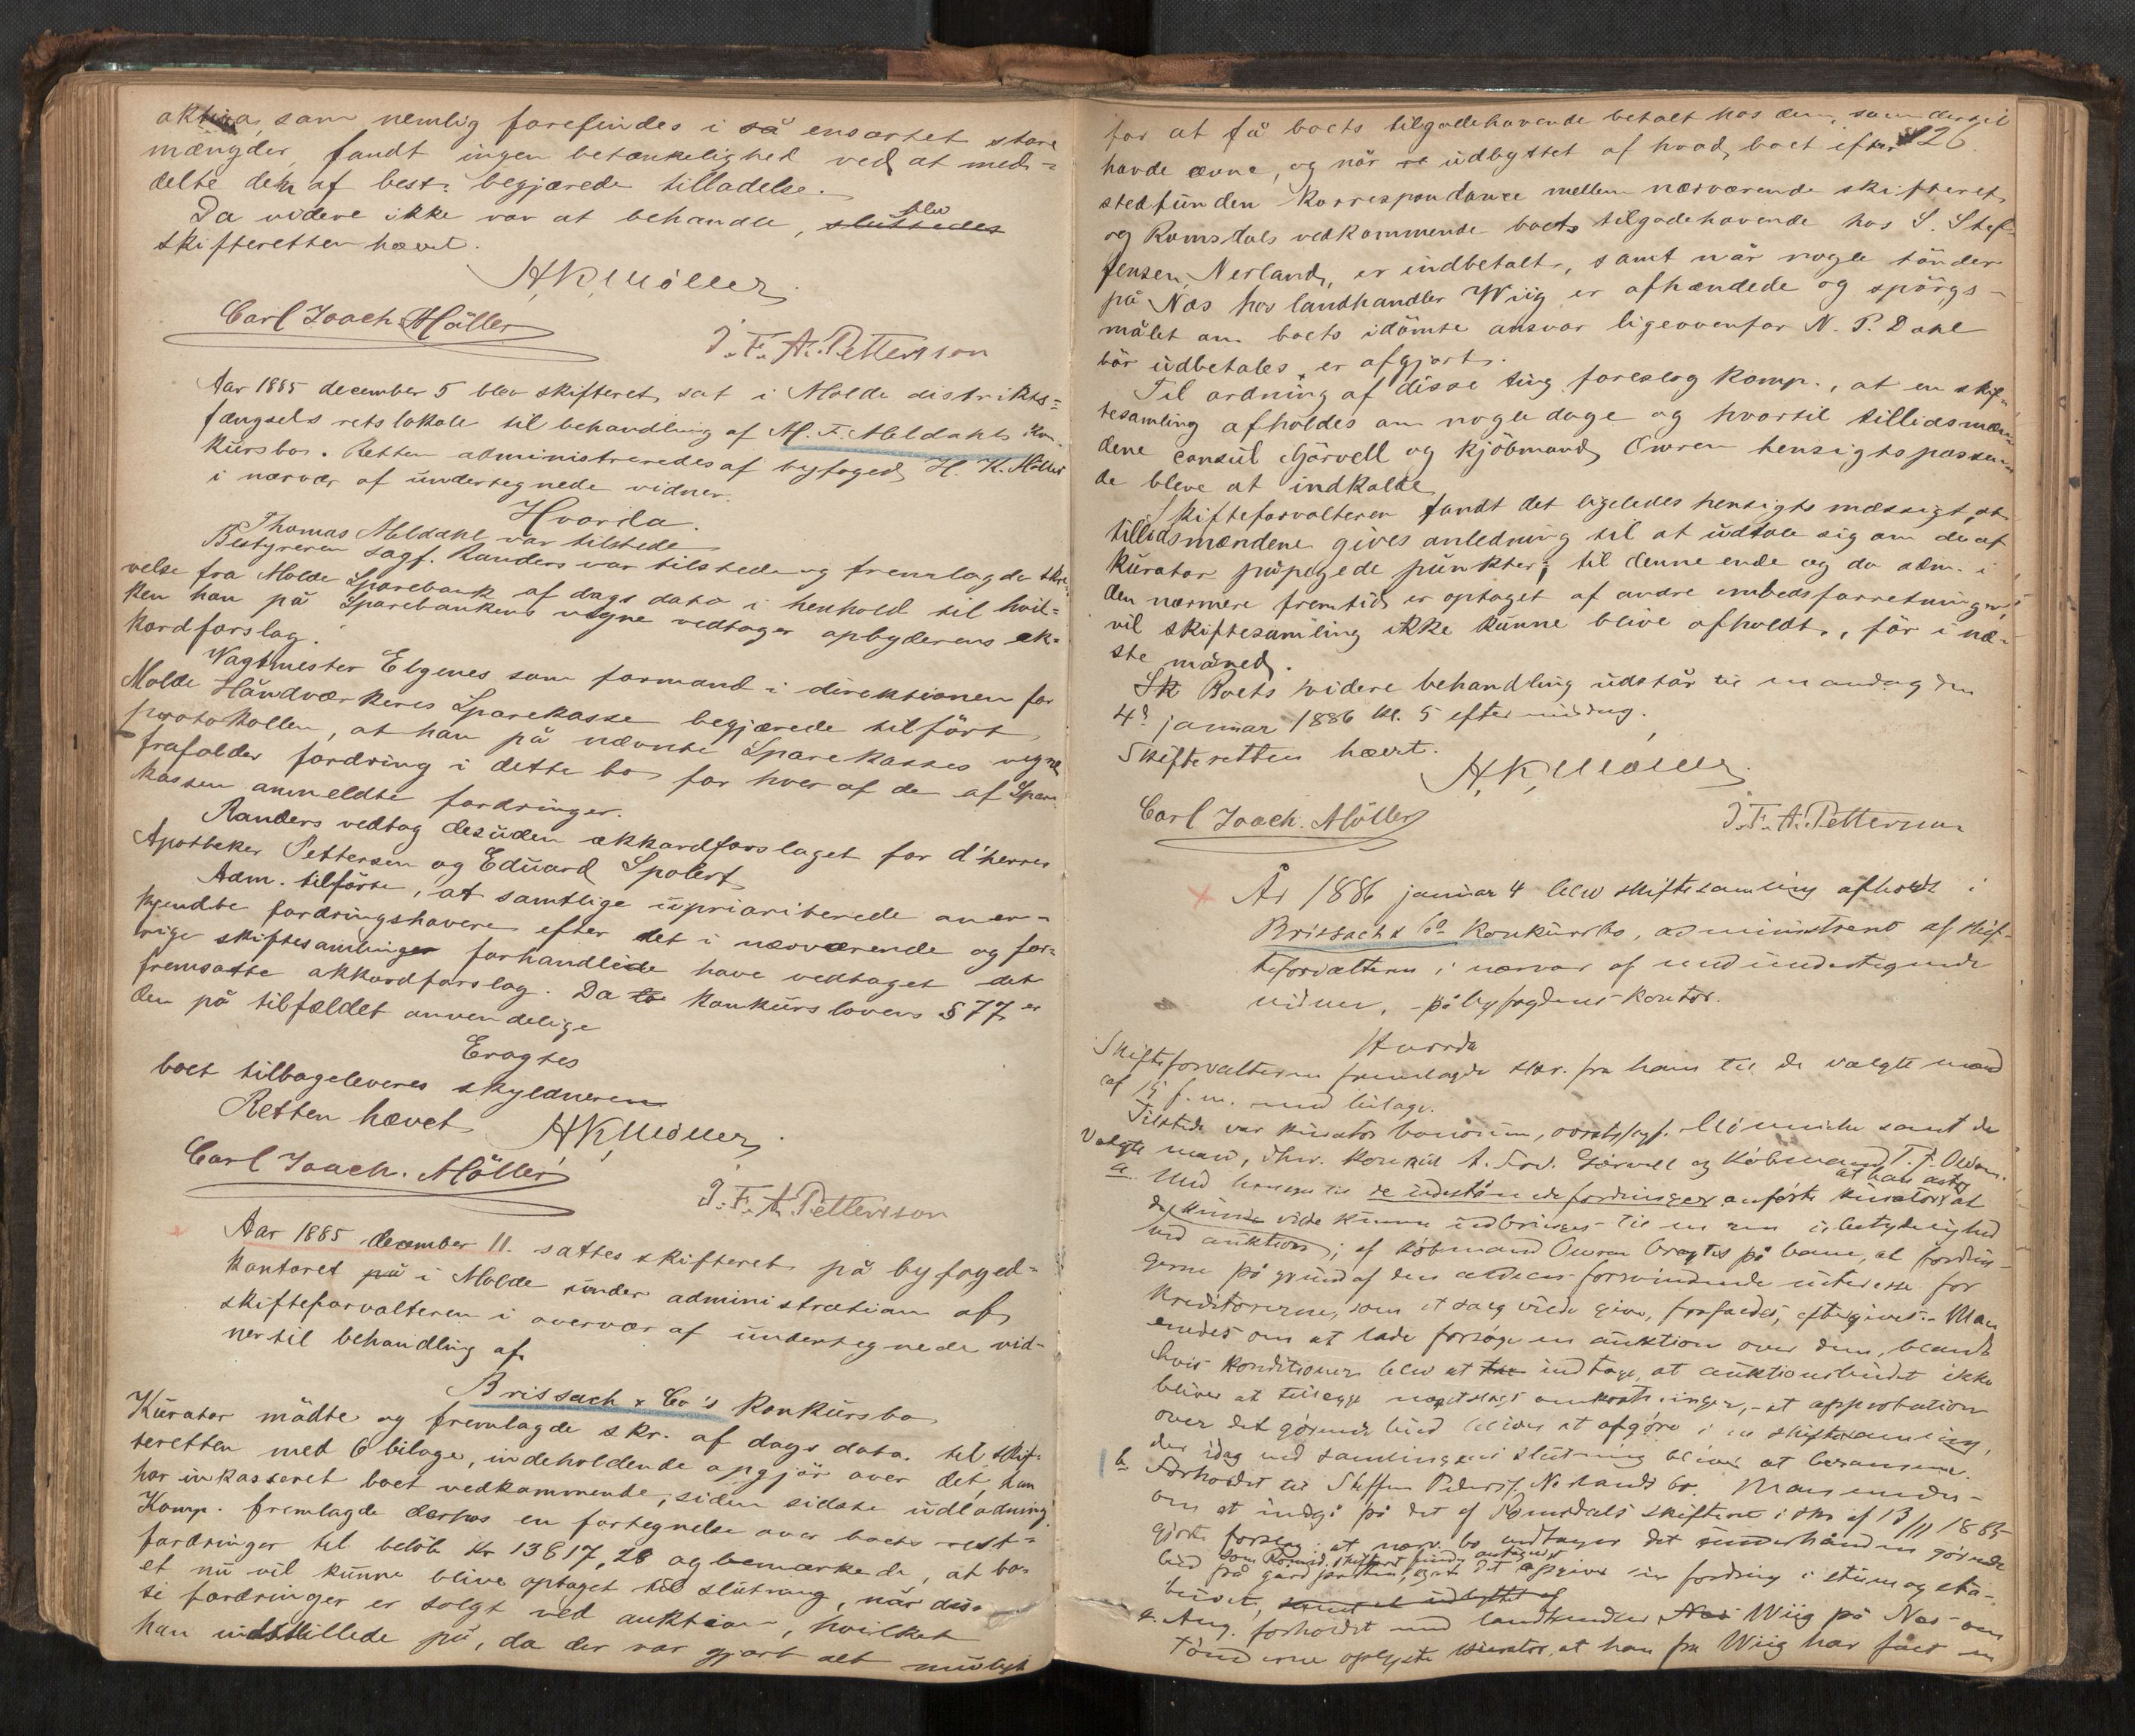 aktiva, som nemlig forefindes i så ensartet store
mængder, fandt ingen betænkelighed ved at med-
delte den af best. begjærede tilladelse.
Da videre ikke var at behandle, sluttedes blev
skifteretten hævet.
H, K, Möller,
Carl Joach. Möller
J. F. A. Petterson
Aar 1885 december 5 blev skifteret sat i Molde distrikts=
fængsels retslokale til behandling af M. F. Meldahls kon-
kursbo. Retten administreredes af byfoged H. K. Möller
i nærvær af undertegnede vidner.
Hvorda.
Thomas Meldahl var tilstede
Bestyreren sagf. Randers var tilstede og fremlagde skri-
velse fra Molde Sparebank af dags dato i henhold til hvil=
ken han på Sparebankens vegne vedtager opbyderens ak-
kordforslag.
Vagtmester Elgenes som formand i direktionen for
Molde Håndværkeres Sparekasse begjærede tilfört
protokollen, at han på nævnte Sparekasses vegne
frafalder fordring i dette bo for hver af de af Spare
kassen anmeldte fordringer.
Randers vedtog desuden akkordforslaget for d'herrer
Apotheker Pettersen og Eduard Spolert
Adm. tilförte, at samtlige upriariterede aner-
kjendte fordringshavere efter det i nærværende og for-
rige skiftesamlinger forhandlede have vedtaget det
fremsatte akkordforslag. Da konkurslovens § 77 er
den på tilfældet anvendelige
Eragtes
boet tilbageleveres skyldneren
Retten hævet H, K, Möller,
Carl Joach. Möller
J. F. A. Petterson
Aar 1885 december 11. sattes skifteret på byfoged=
kontoret på i Molde under administration af
skifteforvalteren i overvær af undertegnede vid-
ner til behandling af
Brissach & Co's konkursbo
Kurator mödte og fremlagde skr. af dags dato til skif-
teretten med 6 bilage, indeholdende opgjör over det, han
har inkasseret boet vedkommende, siden sidste udlodning.
Komp. fremlagde derhos en fortegnelse over boets rest-
fordringer til belöb kr 13817,28 og bemærkede, at bo-
et nu vil kunne blive optaget til slutning, når dis-
se fordringer er solgt ved auktion, hvilket
han indstillede på, da der var gjort alt muligt
126.
for at få boets tilgodehavende betalt hos dem, som dertil
havde ævne, og når udbyttet af hvad boet efter
stedfunden korrespondance mellem nærværende skifteret
og Romsdals vedkommende boets tilgodehavende hos S. Stef-
fensen, Nerland, er indbetalt, samt når nogle tönder
på Næs hos landhandler Wiig er afhændede og spörgs-
målet om boets idömte ansvar ligeovenfor N. P. Dahl
bör udbetales er afgjort.
Til ordning af disse ting foreslog komp., at en skif-
tesamling afholdes om nogle dage og hvortil tillidsmæn-
dene consul Gjörvell og kjöbmand Owren hensigtspassen-
de bleve at indkalde
Skifteforvalteren fandt det ligeledes hensigtsmæssigt, at
tillidsmændene gives anledning til at udtale sig om de af
kurator påpegede punkter; til denne ende og da adm. i
den nærmere fremtid er optaget af andre embedsforretninger,
vil skiftesamling ikke kunne blive afholdt, för i næ-
ste måned.
Sk Boets videre behandling udstår til mandag den
4de januar 1886 kl. 5 eftermiddag.
Skifteretten hævet.
H, K, Möller,
Carl Joach. Möller
J. F. A. Petterson
År 1886 januar 4 blev skiftesamling afholdt i
Brissach & Co konkursbo, administreret af skif-
teforvalteren i nærvær af med undertegnede
vidner, - på byfogdens kontor.
Hvorda
Skifteforvalteren fremlagde skr. fra ham til de valgte mænd
af 15 f. m. med bilage.
Tilstede var kurator bonorum, overretssagf. samt de
valgte mænd, dhrr. konsul A. Görvell og köbmand
a. Med hensyn til de udestående fordringer anförte kurator, at han antog at
de kunde vilde kunne indbringes til en ren ubetydelighed
ved auktion; af köbmand Owren bragtes på bane, at fordrin-
gerne på grund af den aldeles forsvindende interesse for
kreditorerne, som et salg vilde give, frafaldes, eftergives. - Man
enedes om at lade forsöge en auktion over dem, blandt
hvis konditioner blev at indtage, at auktionsbudet ikke
bliver at tillægge noget slags omkostninger, - at approbation
over det görende bud bliver at afgöre i en skiftesamling,
der idag ved samlingens slutning bliver at beramme.
b. Forholdet til Steffen Peders. Nerlands bo. Man enedes
om at indgå på det af Romsdals skifteret i skr. af 13/11 1885
gjorte forslag: at nærv. bo modtager det underhånden gjorde
bud på gård jorden, som Romsd. skifteret finder antageligt, og at det opgiver sin fordring i
budet, samt et udbyttet af
c. Ang. forholdet med landhandler Wiig på Næs om
tönderne oplyste kurator, at han fra Wiig har fået en